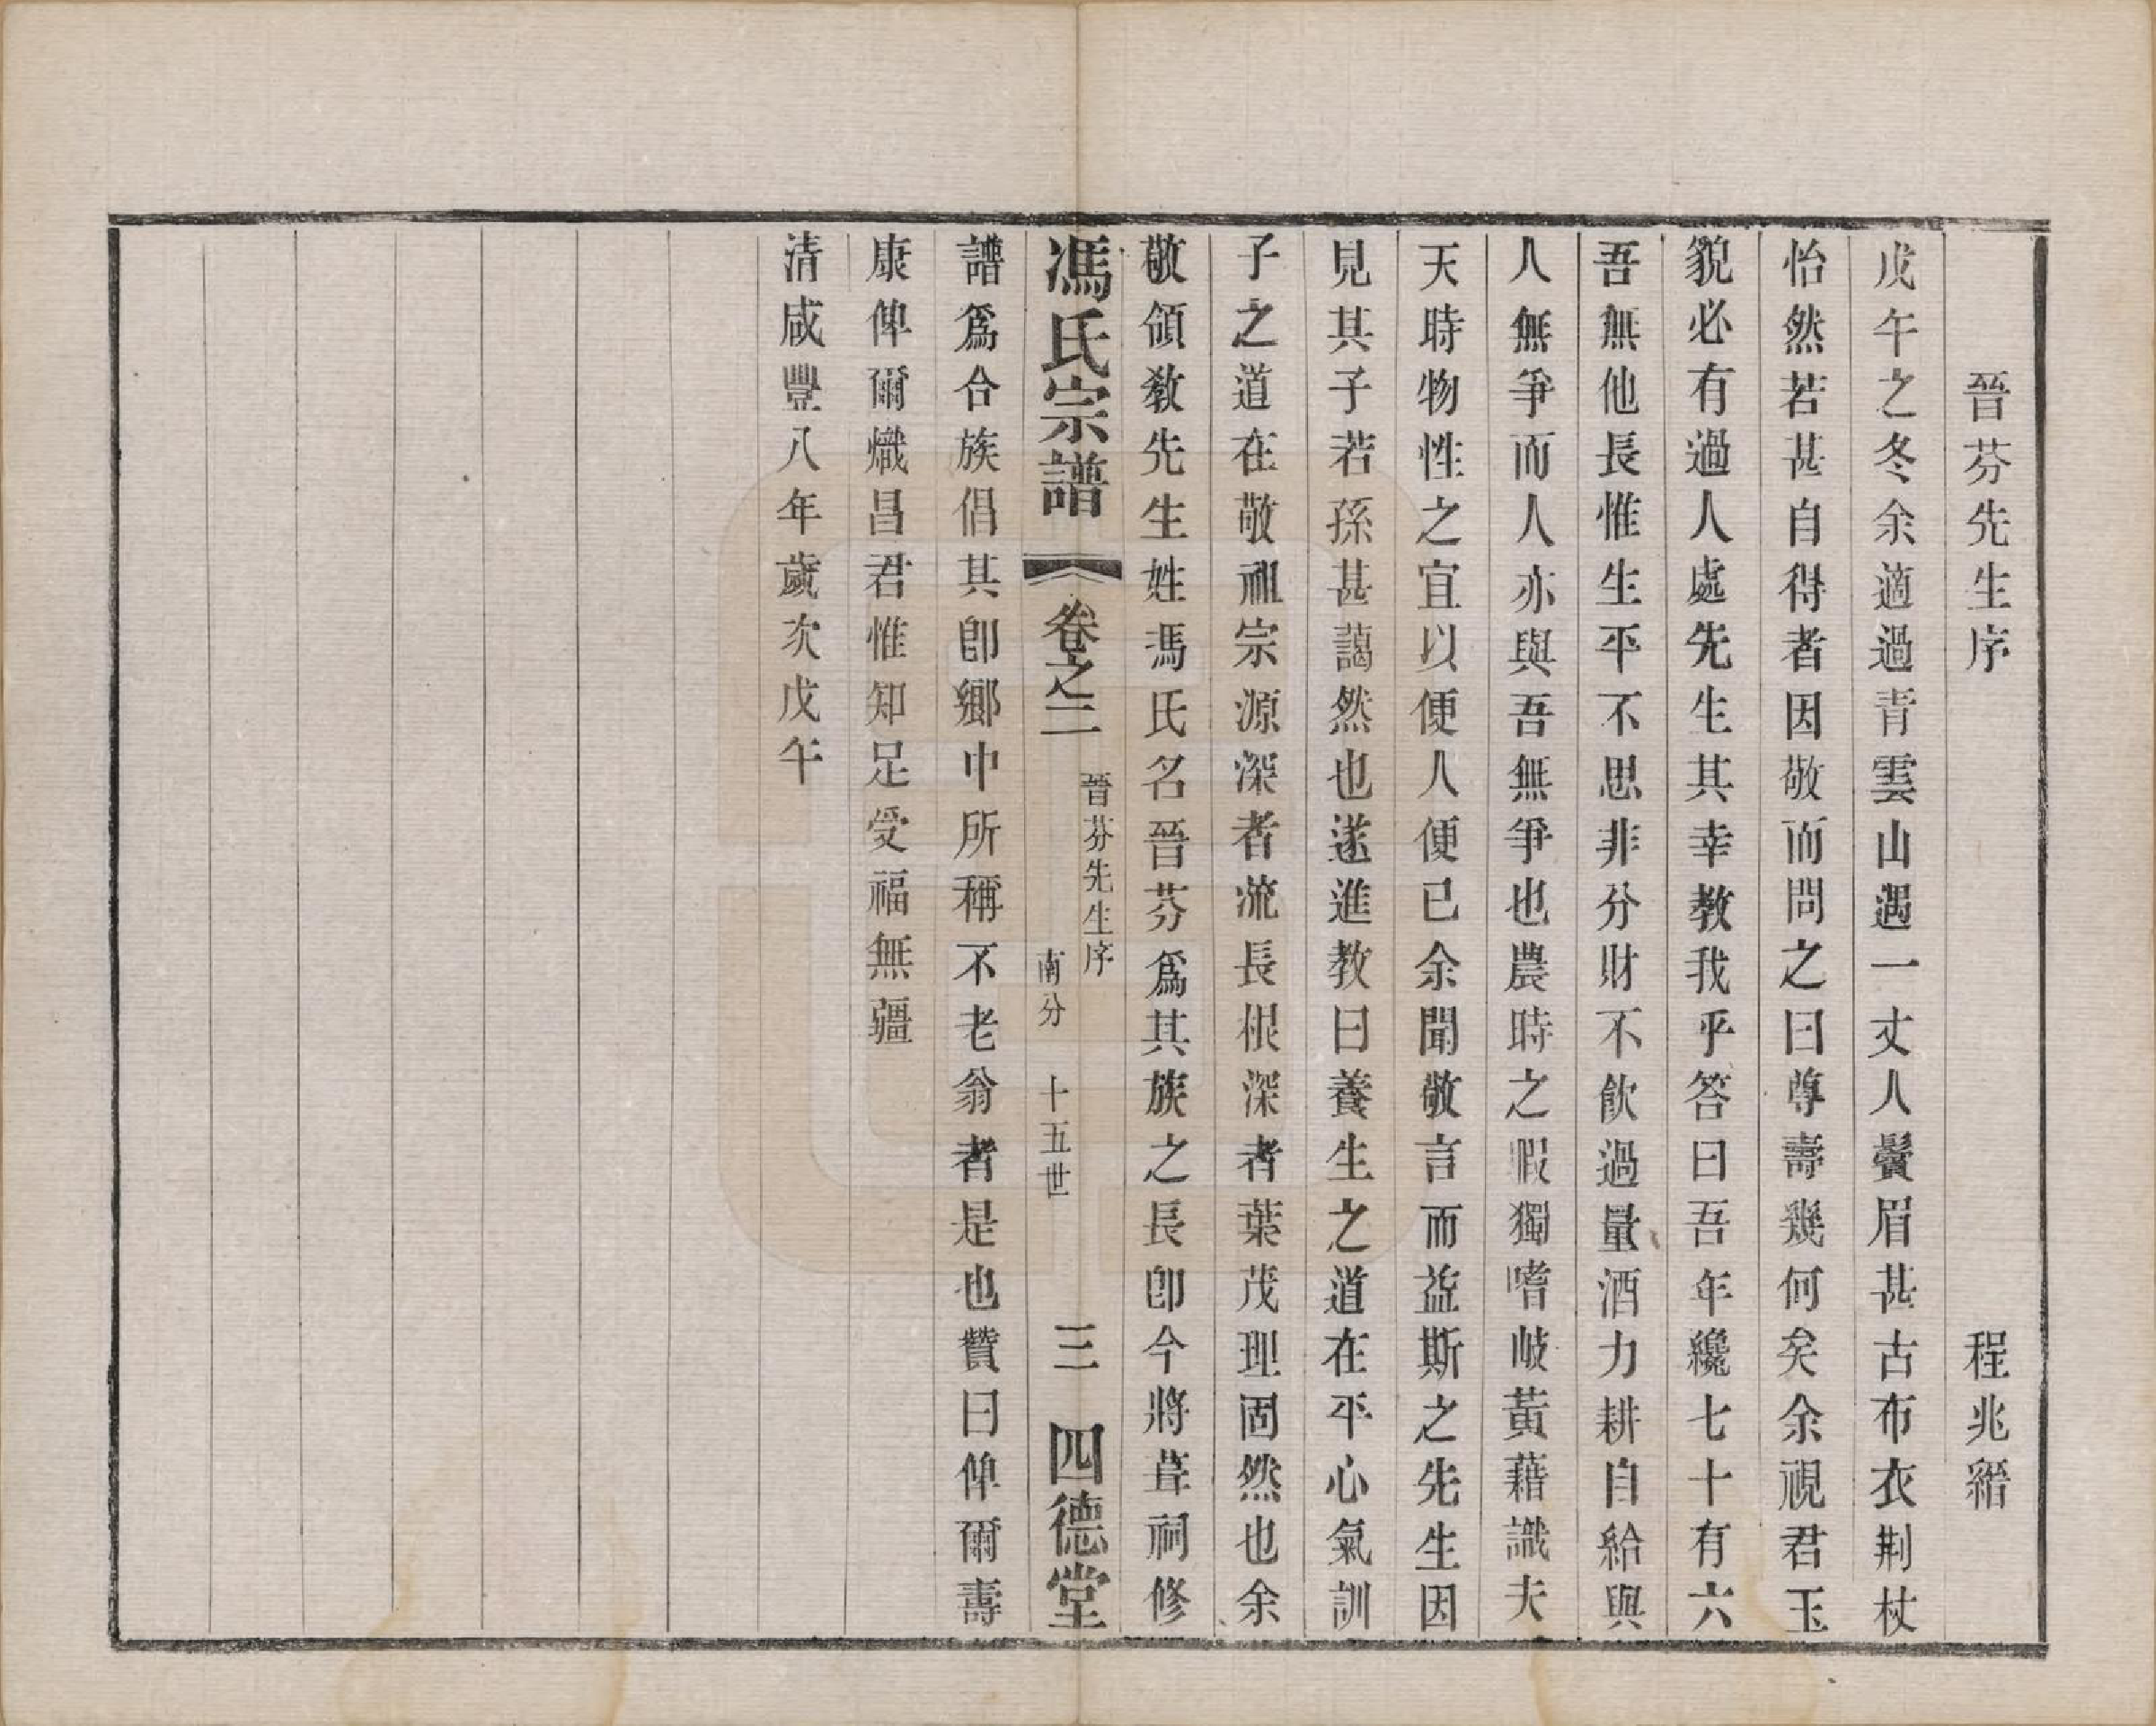 晉芬先生序　程兆縉
戊午之冬余適過青雲山遇一丈人鬢眉甚古布衣荆杖
怡然若甚自得者因敬而問之曰尊壽幾何矣余視君玉
貌必有過人處先生其幸教我乎答曰吾年纔七十有六
吾無他長惟生平不思非分財不飲過量酒力耕自給與
人無爭而人亦與吾無爭也農時之暇獨嗜岐黃藉識夫
天時物性之宜以便人便已余聞敬言而益斯之先生因
見其子若孫甚藹然也遂進教曰養生之道在平心氣訓
子之道在敬祖宗源深者流長根深者葉茂理固然也余
敬領教先生姓馮氏名晉芬爲其族之長卽今將葺祠修
馮氏宗譜　卷之二　晉芬先生序　南分　十五世　三　四德堂
譜爲合族倡其卽鄉中所稱不老翁者是也贊曰俾爾壽
康俾爾熾昌君惟知足受福無疆
清咸豐八年歲次戊午